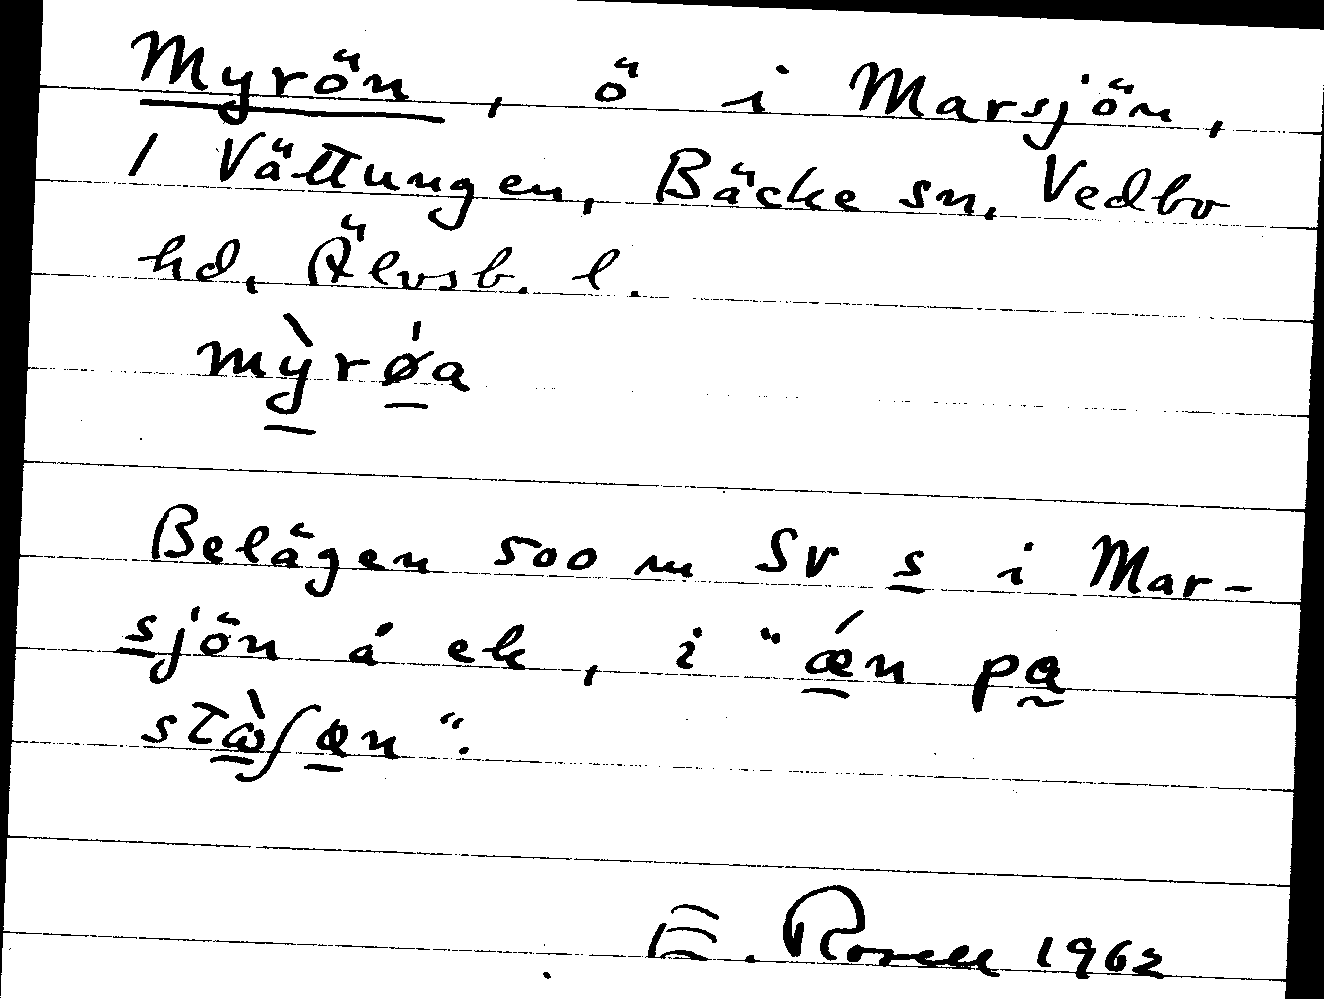 Myrön, ö i Marsjön,
1 Vättungen, Bäcke sn, Vedbo
hd, Älvsb. l.
mỳrǿa
Belägen 500 m SV s i Mar-
sjön å ek, i "ǽn pa
stàʃæn".
E. Rosell 1962